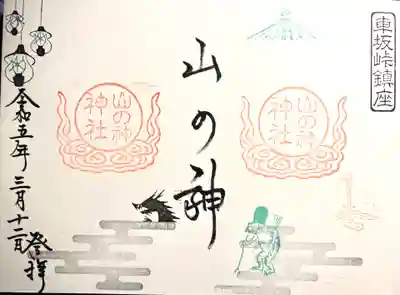 車坂峠鎮座
山の神
神社
山の神
山の神
神社
令和五年三月十二日
登拝